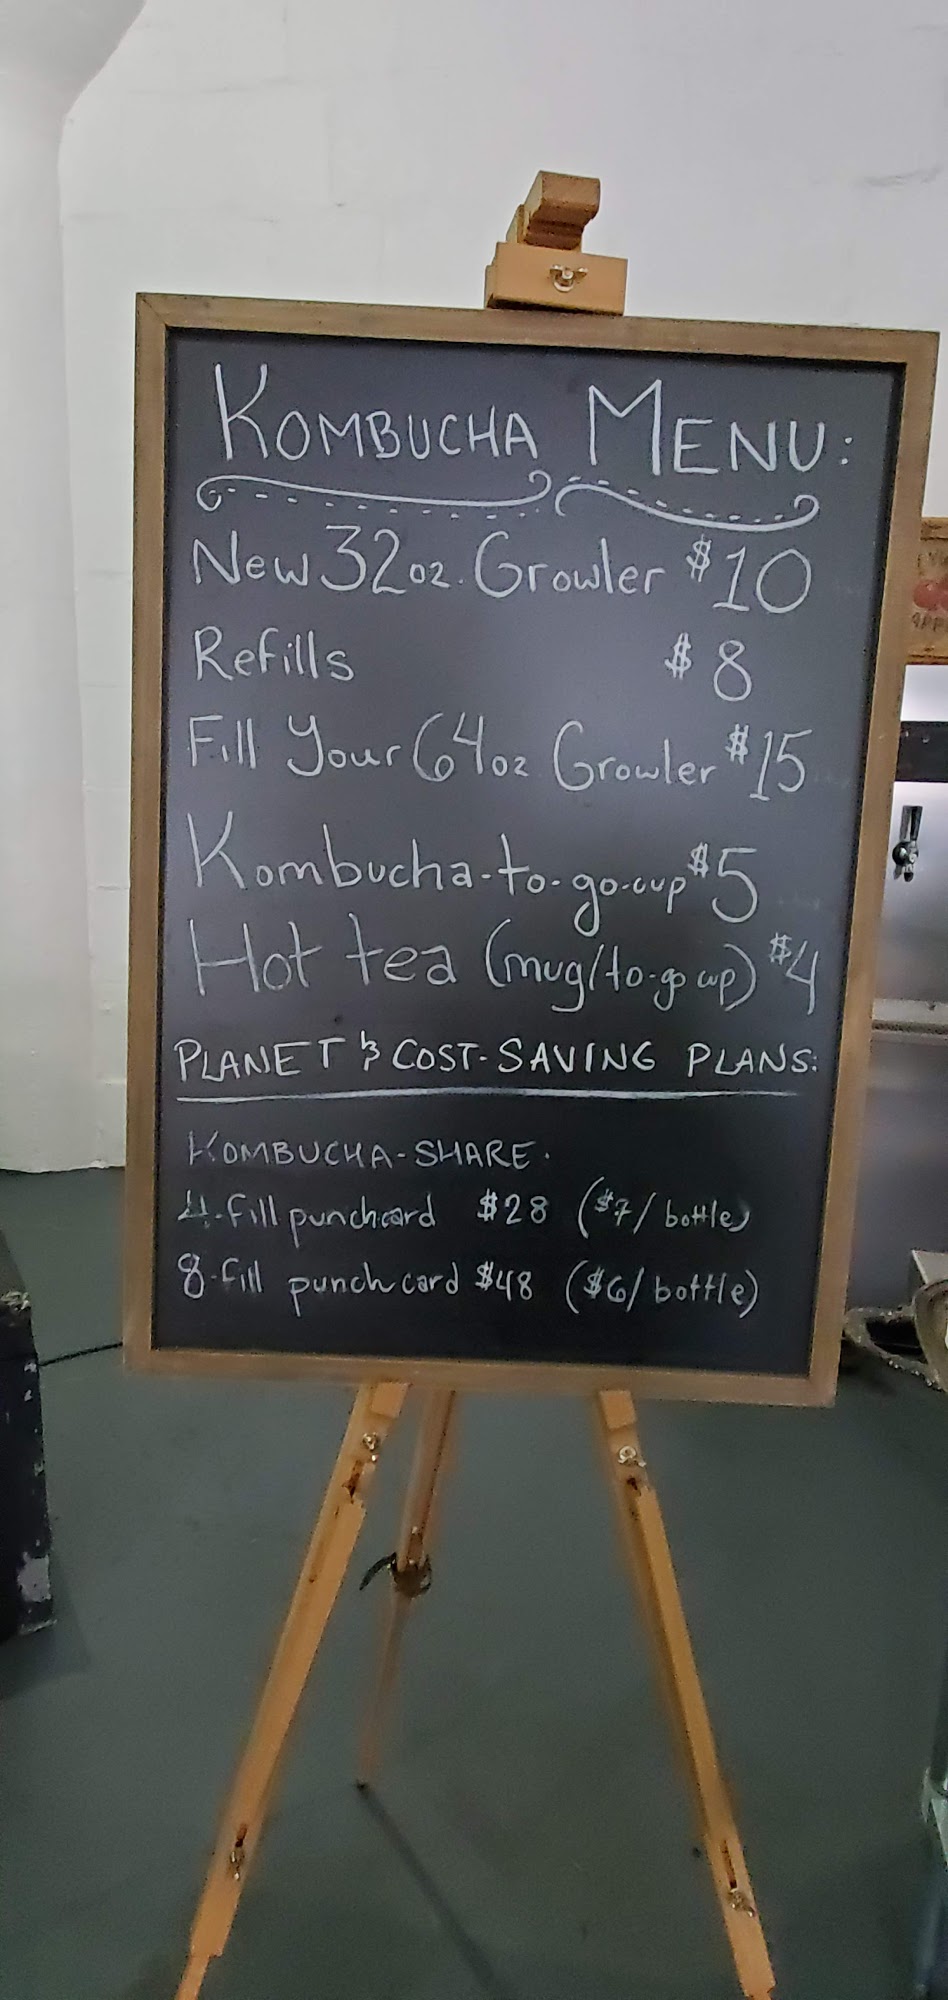 KOMBUCHA MENU:
New 32oz. Growler $10
Refills $8
Fill Your 64oz Growler $15
Kombucha-to-go-cup $5
Hot tea (mug/to-go cup) $4
PLANET & COST-SAVING PLANS:
KOMBUCHA-SHARE.
4-fill punchcard $28 ($7/bottle)
8-fill punch card $48 ($6/bottle)